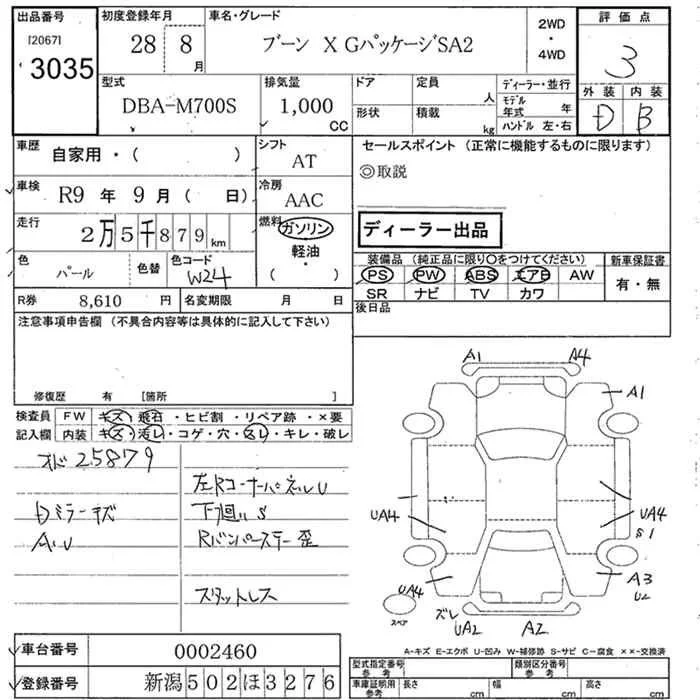 出品番号 初度登録年月 車名・グレード 2WD・4WD 評価点
[2067]
3035 28 8月 ブーン X GパッケージSA2 3
型式 排気量 ドア 定員 人 ディーラー・並行 外装 内装
DBA-M700S 1,000 CC 形状 積載 kg モデル年式 年 D B
ハンドル 左・右
車歴 自家用・( ) シフト AT セールスポイント (正常に機能するものに限ります)
◎取説
車検 R9 年 9 月 ( 日) 冷房 AAC
走行 2万5千879km 燃料 ガソリン 軽油・( ) ディーラー出品
色 パール 色替 色コード W24 装備品 (純正品に限り○をつけてください) 新車保証書
PS PW ABS エアB AW 有・無
R券 8,610 円 名変期限 月 日 SR ナビ TV カワ
注意事項申告欄 (不具合内容等は具体的に記入して下さい) 後日品
修復歴 有 [箇所 ]
検査員 FW キズ・飛石・ヒビ割・リペア跡・×要
記入欄 内装 キズ・汚レ・コゲ・穴・スレ・キレ・破レ
オド 25879
左RコーナーパネルU
Dミラーキズ 下廻りS
A.U Rバンパーステー歪
スタットレス
A1 A4
A1
UA4 UA4
S1
UA4 A3
U2
スペア ズレ UA2 A2
A-キズ E-エクボ U-凹み W-補修跡 S-サビ C-腐食 ××-交換済
車台番号 0002460 型式指定番号 参考 類別区分番号 参考
登録番号 新潟502ほ3276 車庫証明用 参考 長さ cm 幅 cm 高さ cm